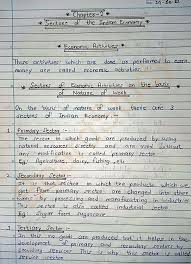 Chapter-2
Sectors of the Indian Economy
Economic Activities
Those activities which are done or performed to earn
money are called economic activities.
Sectors of Economic Activities on the basis
of Nature of Work
On the basis of nature of work there are 3
sectors of Indian Economy :-
1. Primary Sector :-
The sector in which goods are produced by using
natural resources directly and are used without
any modification is called primary sector
Eg. Agriculture, dairy, fishing etc.
2. Secondary Sector :-
It is that sector in which the products which we
get from primary sector are changed into other
forms by processing or manufacturing in industries
This sector is also called industrial sector
Eg. Sugar from Sugarcane.
3. Tertiary Sector :-
In this no goods are produced but it helps in the
development of primary and secondary sector by
providing services. This is why this sector is called
service sector